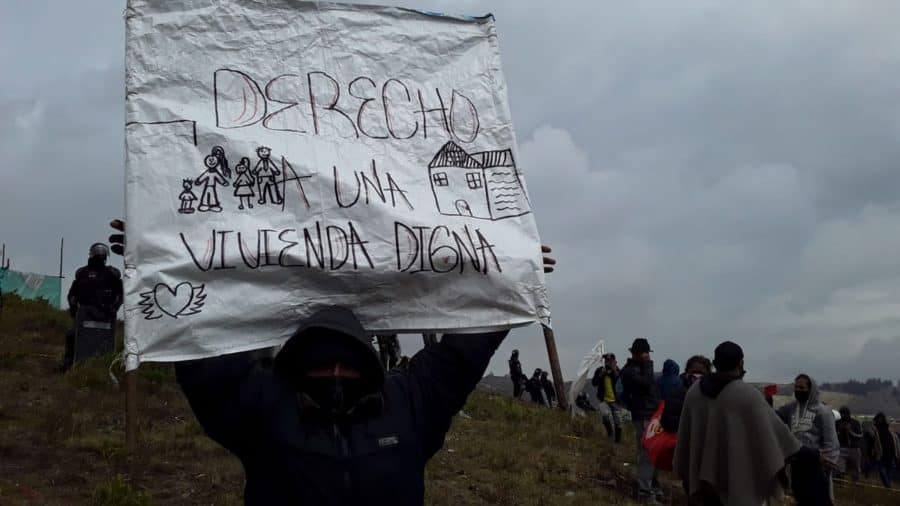 DERECHO
A UNA
VIVIENDA DIGNA